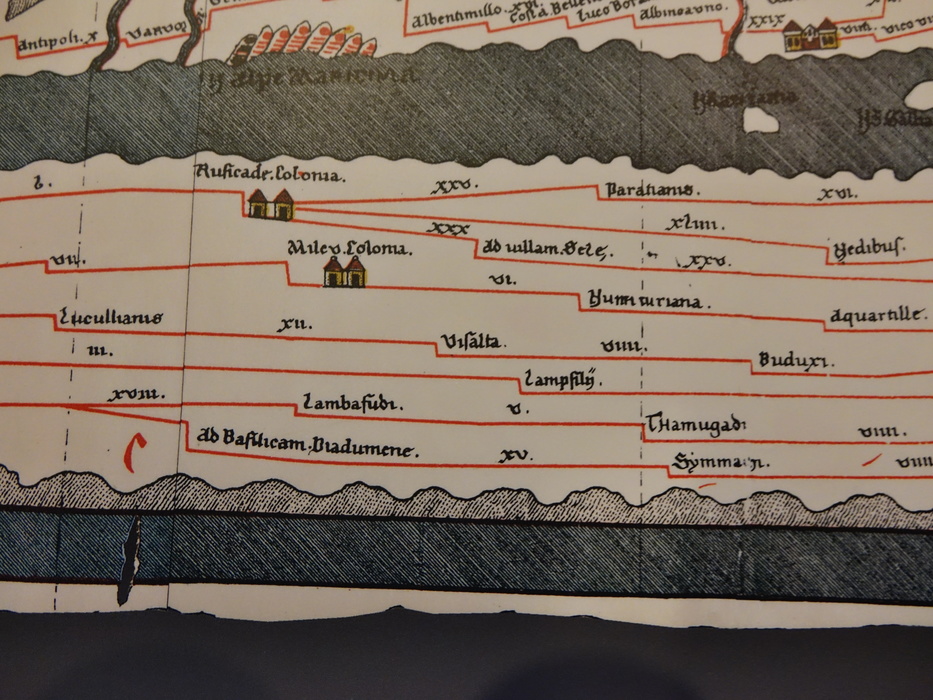 Antipoli. x
Varvo
Albentimillo. xvi.
Costa Bellen
Luco Bor
Albingauno.
xxix
vico vi
In Alpe Maritima
b.
Rusicade. Colonia.
xxv.
Paratianis.
xvi.
xliiii.
xxx
Milev. Colonia.
Ad villam. Sele.
Hedibus.
vii.
xxv.
vi.
Numituriana.
Aquartille.
Lucullianis
xii.
Visalta.
viiii.
Buduxi.
iii.
Lampsilii.
xviii.
Lambafudi.
v.
THamugadi
viiii.
Ad Basilicam. Diadumene.
xv.
Symma
viiii